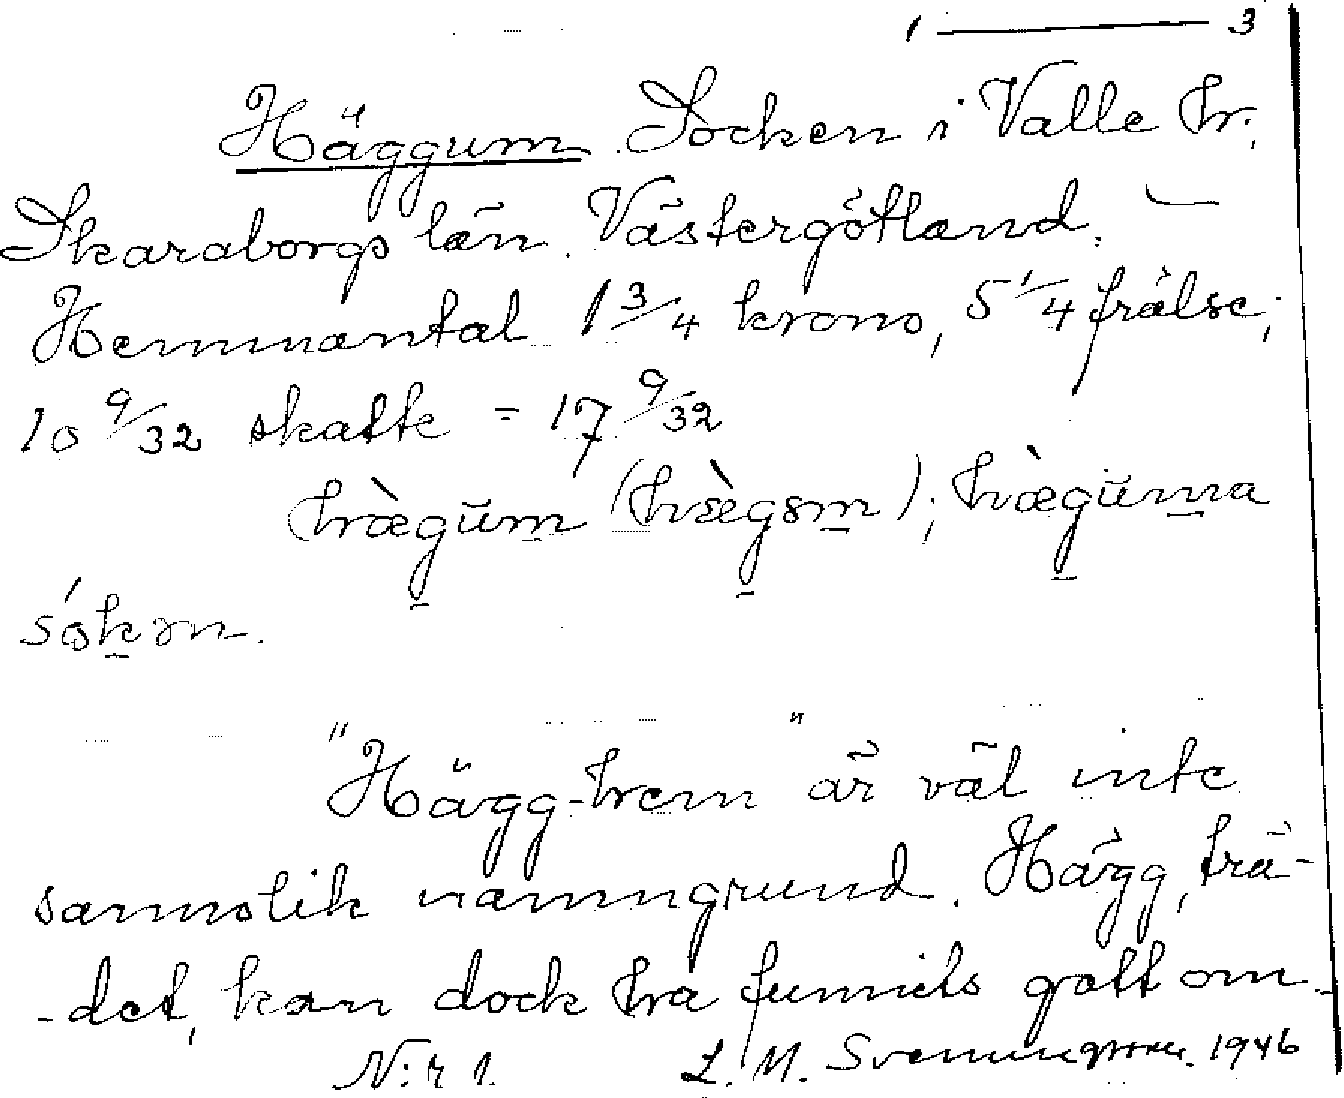 1 — 3
Häggum Socken i Valle hr.
Skaraborgs län. Västergötland. —
Hemmantal 1 3/4 krono, 5 1/4 frälse;
10 9/32 skatte = 17 9/32
hæ̀gŭm (hæ̀gəm); hæ̀gŭma
sókən.
"Hägg-hem" är väl inte
sannolik namngrund. Hägg, trä-
-det, kan dock ha funnits gott om-
N:r 1. L. M. Svenungsson. 1946